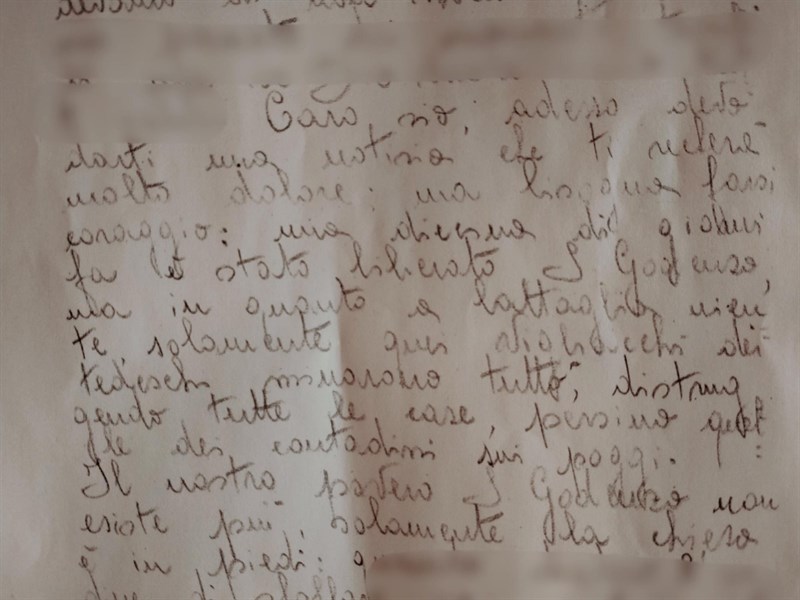 Caro zio, adesso devo
darti una notizia che ti recherà
molto dolore; ma bisogna farsi
coraggio: una diecina di giorni
fa è stato liberato S Godenzo,
ma in quanto a battaglia nien
te, solamente quei vigliacchi dei
tedeschi minarono tutto, distrug
gendo tutte le case, persino quel
le dei contadini sui poggi.
Il nostro povero S Godenzo non
esiste più, solamente la chiesa
è in piedi: